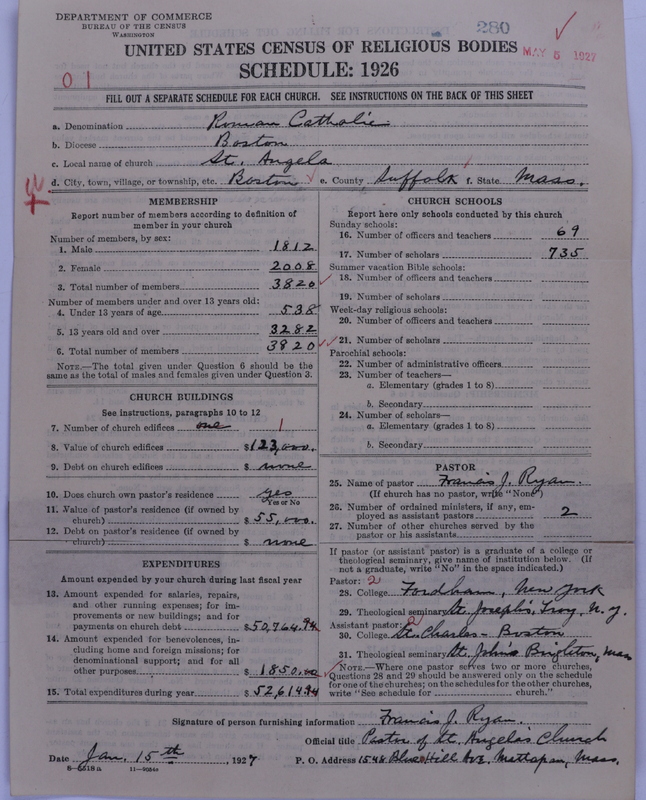 DEPARTMENT OF COMMERCE
BUREAU OF THE CENSUS
WASHINGTON
280
MAY 5 1927
UNITED STATES CENSUS OF RELIGIOUS BODIES
SCHEDULE: 1926
01
FILL OUT A SEPARATE SCHEDULE FOR EACH CHURCH. SEE INSTRUCTIONS ON THE BACK OF THIS SHEET
a. Denomination Roman Catholic
b. Diocese Boston
c. Local name of church St. Angela
d. City, town, village, or township, etc. Boston e. County Suffolk f. State Mass.
MEMBERSHIP
Report number of members according to definition of
member in your church
Number of members, by sex:
1. Male 1812
2. Female 2008
3. Total number of members 3820
Number of members under and over 13 years old:
4. Under 13 years of age 538
5. 13 years old and over 3282
6. Total number of members 3820
NOTE.—The total given under Question 6 should be
same as the total of males and females given under Question 3.
CHURCH BUILDINGS
See instructions, paragraphs 10 to 12
7. Number of church edifices one 1
8. Value of church edifices $123,000.
9. Debt on church edifices $ none
10. Does church own pastor's residence yes
Yes or No
11. Value of pastor's residence (if owned by
church) $55,000.
12. Debt on pastor's residence (if owned by
church) $ none
EXPENDITURES
Amount expended by your church during last fiscal year
13. Amount expended for salaries, repairs,
and other running expenses; for im-
provements or new buildings; and for
payments on church debt $50,764.94
14. Amount expended for benevolences, in-
cluding home and foreign missions; for
denominational support; and for all
other purposes $1850.00
15. Total expenditures during year $52,614.94
CHURCH SCHOOLS
Report here only schools conducted by this church
Sunday schools:
16. Number of officers and teachers 69
17. Number of scholars 735
Summer vacation Bible schools:
18. Number of officers and teachers
19. Number of scholars
Week-day religious schools:
20. Number of officers and teachers
21. Number of scholars
Parochial schools:
22. Number of administrative officers
23. Number of teachers—
a. Elementary (grades 1 to 8)
b. Secondary
24. Number of scholars—
a. Elementary (grades 1 to 8)
b. Secondary
PASTOR
25. Name of pastor Francis J. Ryan.
(If church has no pastor, write "None")
26. Number of ordained ministers, if any, em-
ployed as assistant pastors 2
27. Number of other churches served by the
pastor or his assistants
If pastor (or assistant pastor) is a graduate of a college or
theological seminary, give name of institution below. (If
not a graduate, write "No" in the space indicated.)
Pastor: 2
28. College Fordham, New York
29. Theological seminary St. Joseph's, Troy, N.Y.
Assistant pastor: 2
30. College St. Charles - Boston
31. Theological seminary St. Johns Brighton, Mass
NOTE.—Where one pastor serves two or more churches,
Questions 28 and 29 should be answered only on the schedule
for one of the churches; on the schedules for the other churches,
write "See schedule for church."
Signature of person furnishing information Francis J. Ryan.
Official title Pastor of St. Angela's Church
Date Jan. 15th, 1927 P. O. Address 1548 Blue Hill Ave, Mattapan, Mass.
8—5518a 11—9054